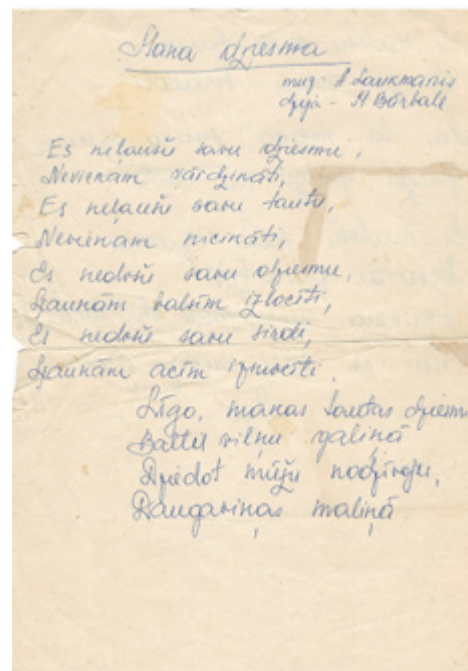 Mana dziesma
muz. A Laukmanis
dzeja - M Bārbale
Es neļaušu savu dziesmu,
Nevienam vārdzināti,
Es neļaušu savu tautu,
Nevienam nicināti,
Es nedošu savu dziesmu,
Ļaunām balsīm izlocīti,
Es nedošu savu sirdi,
Ļaunām acīm izmocīti.
Līgo, manas tautas dziesma
Baltu viļņu galiņā
Dziedot mūžu nodzīvoju,
Daugaviņas maliņā.